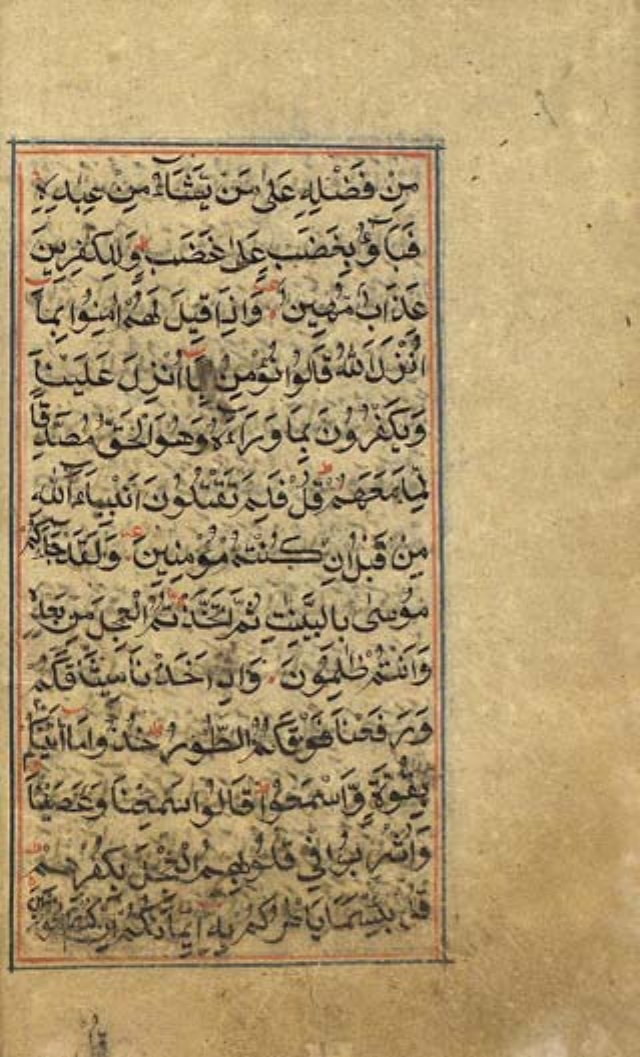 مِنْ فَضْلِهِ عَلٰى مَنْ يَشَآءُ مِنْ عِبَادِهِ
فَبَآؤُ بِغَضَبٍ عَلٰى غَضَبٍ ط وَلِلْكٰفِرِينَ
عَذَابٌ مُهِينٌ وَاِذَا قِيلَ لَهُمْ اٰمِنُوا بِمَآ
اَنْزَلَ اللّٰهُ قَالُوا نُؤْمِنُ بِمَآ اُنْزِلَ عَلَيْنَا
وَيَكْفُرُونَ بِمَا وَرَآءَهُ وَهُوَ الْحَقُّ مُصَدِّقًا
لِمَا مَعَهُمْ ط قُلْ فَلِمَ تَقْتُلُونَ اَنْبِيَآءَ اللّٰهِ
مِنْ قَبْلُ اِنْ كُنْتُمْ مُؤْمِنِينَ وَلَقَدْ جَآءَكُمْ
مُوسٰى بِالْبَيِّنٰتِ ثُمَّ اتَّخَذْتُمُ الْعِجْلَ مِنْ بَعْدِهِ
وَاَنْتُمْ ظٰلِمُونَ وَاِذْ اَخَذْنَا مِيثَاقَكُمْ
وَرَفَعْنَا فَوْقَكُمُ الطُّورَ خُذُوا مَآ اٰتَيْنٰكُمْ
بِقُوَّةٍ وَاسْمَعُوا قَالُوا سَمِعْنَا وَعَصَيْنَا
وَاُشْرِبُوا فِي قُلُوبِهِمُ الْعِجْلَ بِكُفْرِهِمْ
قُلْ بِئْسَمَا يَاْمُرُكُمْ بِهِ اِيمَانُكُمْ اِنْ كُنْتُمْ مُؤْمِنِينَ
قل